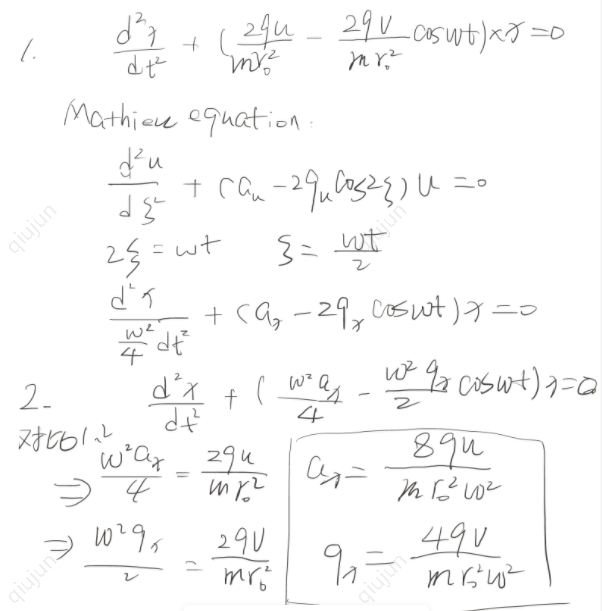 1. d²x/dt² + (2qu/mr₀² - 2qv/mr₀² cos wt) × x = 0
Mathieu equation:
d²u/dξ² + (aᵤ - 2qᵤ cos2ξ) u = 0
2ξ = wt ξ = wt/2
d²x/(w²/4 dt²) + (aₓ - 2qₓ cos wt) x = 0
2. d²x/dt² + (w²aₓ/4 - w²qₓ/2 cos wt) x = 0
对比1、2
⇒ w²aₓ/4 = 2qu/mr₀² aₓ = 8qu/mr₀²w²
⇒ w²qₓ/2 = 2qV/mr₀² qₓ = 4qV/mr₀²w²
qiujun
qiujun
qiujun
qiujun
qiujun